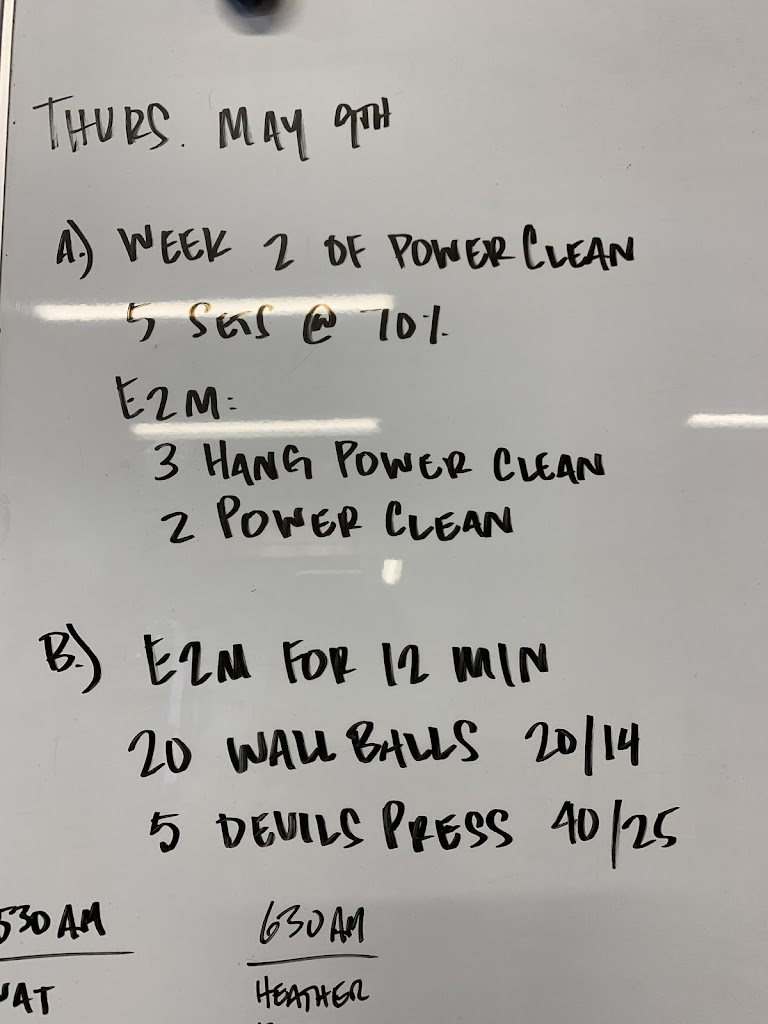 THURS. MAY 9TH
A.) WEEK 2 OF POWER CLEAN
5 SETS @ 70%
E2M:
3 HANG POWER CLEAN
2 POWER CLEAN
B.) E2M FOR 12 MIN
20 WALL BALLS 20/14
5 DEVILS PRESS 40/25
530 AM 630 AM
HEATHER